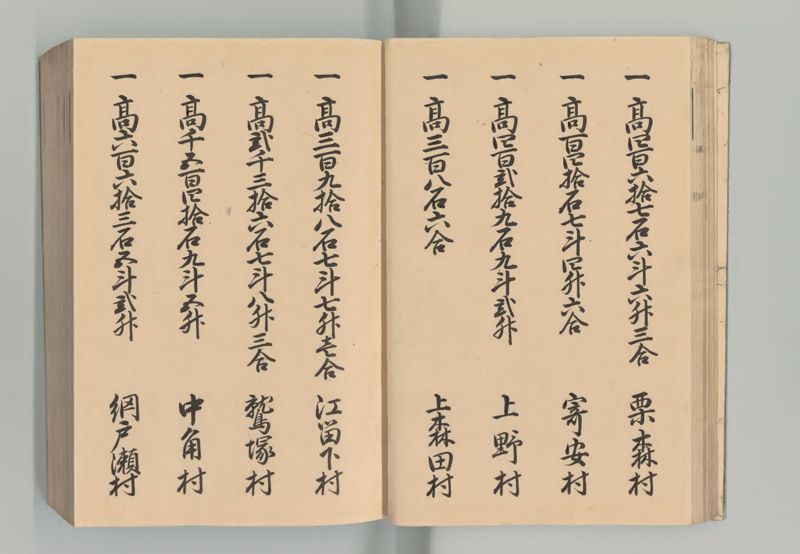 一 高四百六拾七石六斗六升三合 栗森村
一 高百四拾石七斗四升六合 寄安村
一 高四百弐拾九石九斗弐升 上野村
一 高三百八石六合 上森田村
一 高三百九拾八石七斗七升壱合 江留下村
一 高弐千三拾六石七斗八升三合 鷲塚村
一 高千五百四拾石九斗五升 中角村
一 高六百六拾三石五斗弐升 網戸瀬村